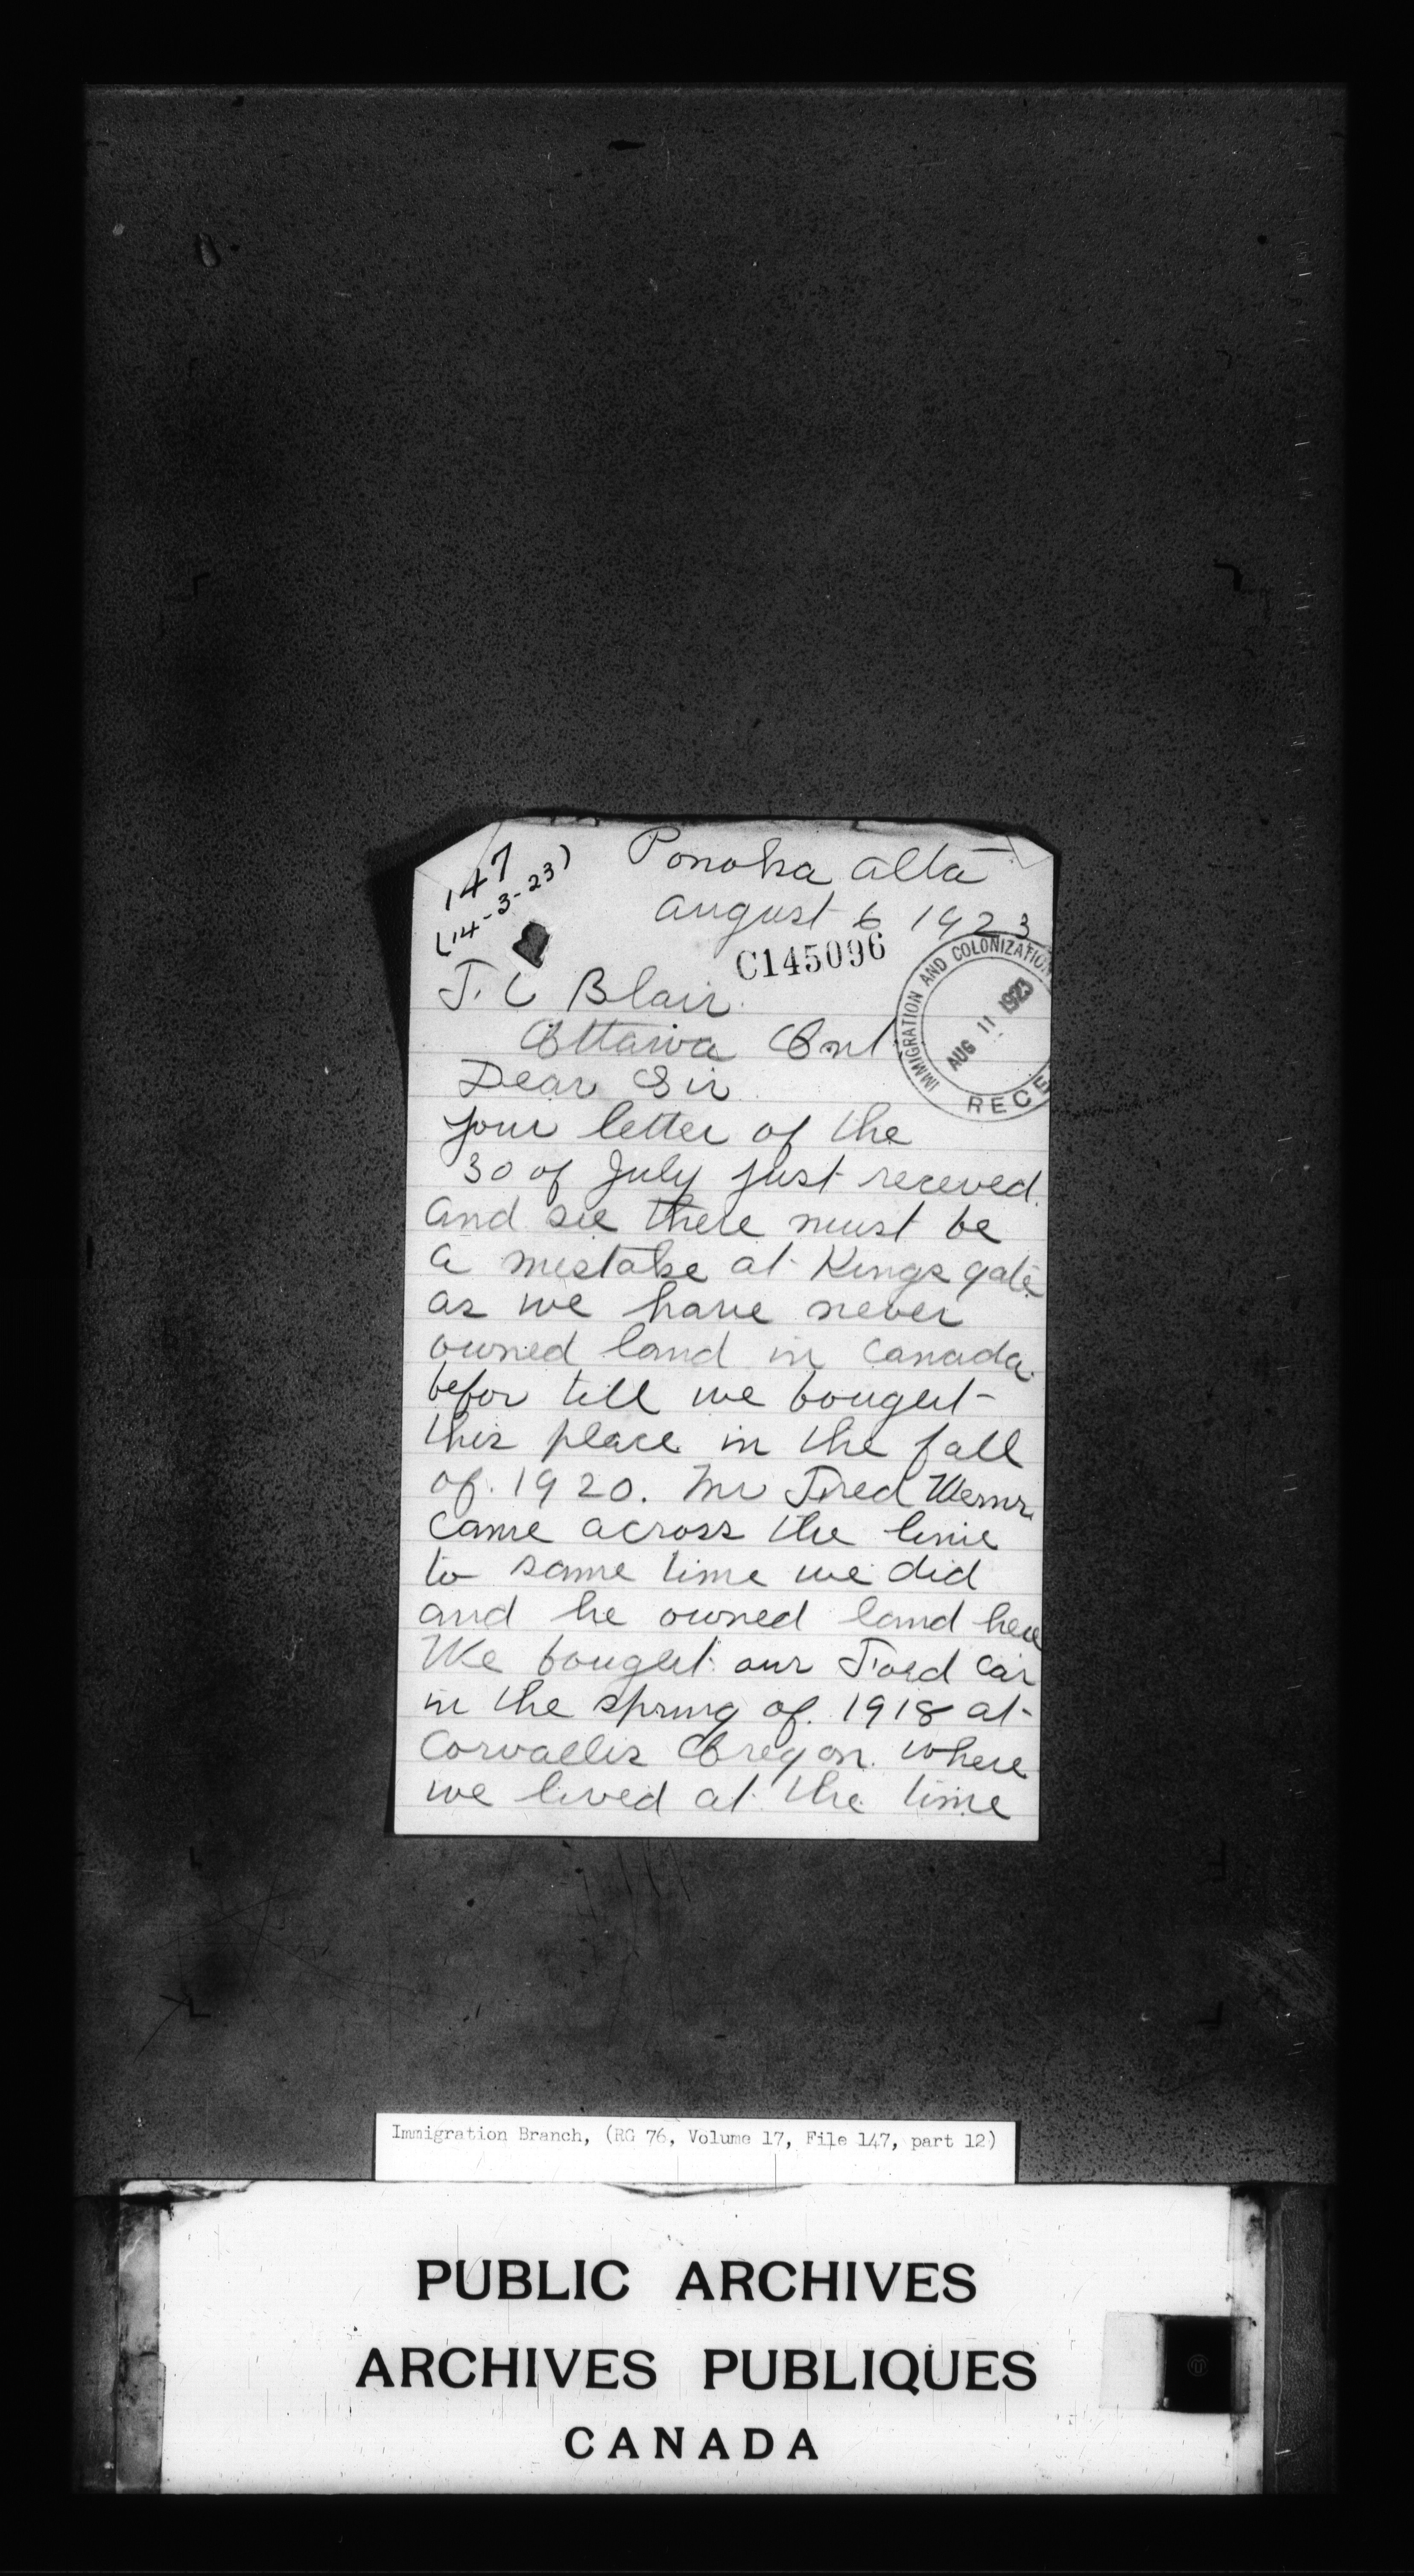 147
(14-3-23)
Ponoka Alta
August 6 1923
C145096
IMMIGRATION AND COLONIZATION
AUG 11 1923
RECE
J. C Blair.
Ottawa Ont.
Dear Sir
your letter of the
30 of July just receved.
And see there must be
a mistake at Kings gate
as we have never
owned land in Canada.
befor till we bought
this place in the fall
of. 1920. Mr Fred
came across the line
to same time we did
and he owned land here
We bought our Ford car
in the spring of. 1918 at
Corvallis Oregon. where
we lived at the time
Immigration Branch, (RG 76, Volume 17, File 147, part 12)
PUBLIC ARCHIVES
ARCHIVES PUBLIQUES
CANADA